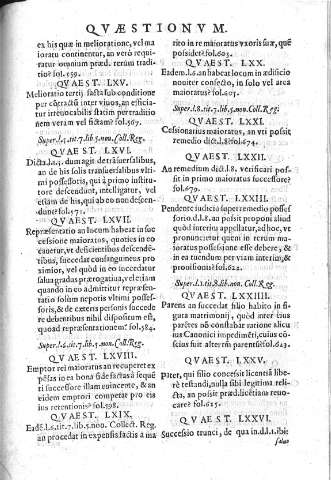 QVÆSTIONVM.
ex his quæ in melioratione, vel ma
ioratu continentur, an verò requi-
ratur omnium præd. rerum tradi-
tio? fol.559.
QVÆST. LXV.
Melioratio tertij facta sub conditione
per cōtractū inter viuos, an efficia-
tur irreuocabilis statim per traditio
nem veram vel fictam? 567.
Super.l.5.tit.7.lib.5.nou.Coll.Reg.
QVÆST. LXVI.
Dicta.l.5. dum agit de trāsuersalibus,
an de his solis transuersalibus vlti-
mi possessoris, qui à primo institu-
tore descendunt, intelligatur, vel
etiam de his, qui ab eo non descen-
dunt? fol.571.
QVÆST. LXVII.
Repræsentatio an locum habeat in suc
cessione maioratus, quoties in eo
euenerit, vt deficientibus descendē-
tibus, succedat consanguineus pro
ximior, vel quòd in eo succedatur
salua gradus prærogatiua, vel etiam
quando in eo admittitur repræsen-
tatio solùm nepotis vltimi possef-
soris, & de cæteris personis succede
re debentibus nihil dispositum est,
quoad repræsentationem? fol.584.
Super.l.6.tit.7.lib.5.nou.Coll.Reg.
QVÆST. LXVIII.
Emptor rei maioratus an recuperet ex
pēsas in ea bona fide factas à seque
ti successore illam euincente, & an
eidem emptori competat pro eis
ius retentionis? fol.598.
QVÆST. LXIX.
Eadē.l.6.tit.7.lib.5.nou. Collect. Reg.
an procedat in expensis factis à ma
rito in re maioratus vxoris suæ, quē
possidet? fol.603.
QVÆST. LXX.
Eadem.l.6. an habeat locum in ædificio
nouiter confecto, in solo vel area
maioratus? fol.607.
Super.l.8.tit.7.lib.5.nou.Coll.Reg.
QVÆST. LXXI.
Cessionarius maioratus, an vti possit
remedio dict.l.8? fol.674.
QVÆST. LXXII.
An remedium dict.l.8. verificari pos-
sit in primo maioratus successore?
fol.679.
QVÆST. LXXIII.
Pendente iudicio super remedio posses
sorio.d.l.8. an possit proponi aliud
quod interim appellatur, ad hoc, vt
pronuncietur quem in rerum ma-
ioratus possessione esse debere, &
in ea tuendum per viam interim, &
prouisionis? fol.622.
Super.l.1.tit.8.lib.5.nou.Coll.Reg.
QVÆST. LXXIIII.
Parens an succedat filio habito in fi-
gura matrimonij, quòd inter eius
parētes nō constabat ratione alicu
ius Canonici impedimēti, cuius cō-
scius fuit alter parentū? fol.623.
QVÆST. LXXV.
Pater, qui filio concessit licentiā libe-
rè testandi, nulla sibi legitima reli-
cta, an possit præd. licētiam reuo-
care? fol.625.
QVÆST. LXXVI.
Successio trunci, de qua in.d.l.1.ibi:
saluo